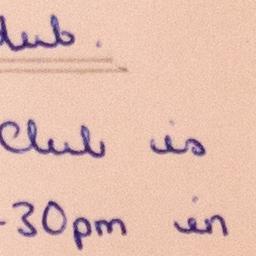 Club.
Club is
-30pm in